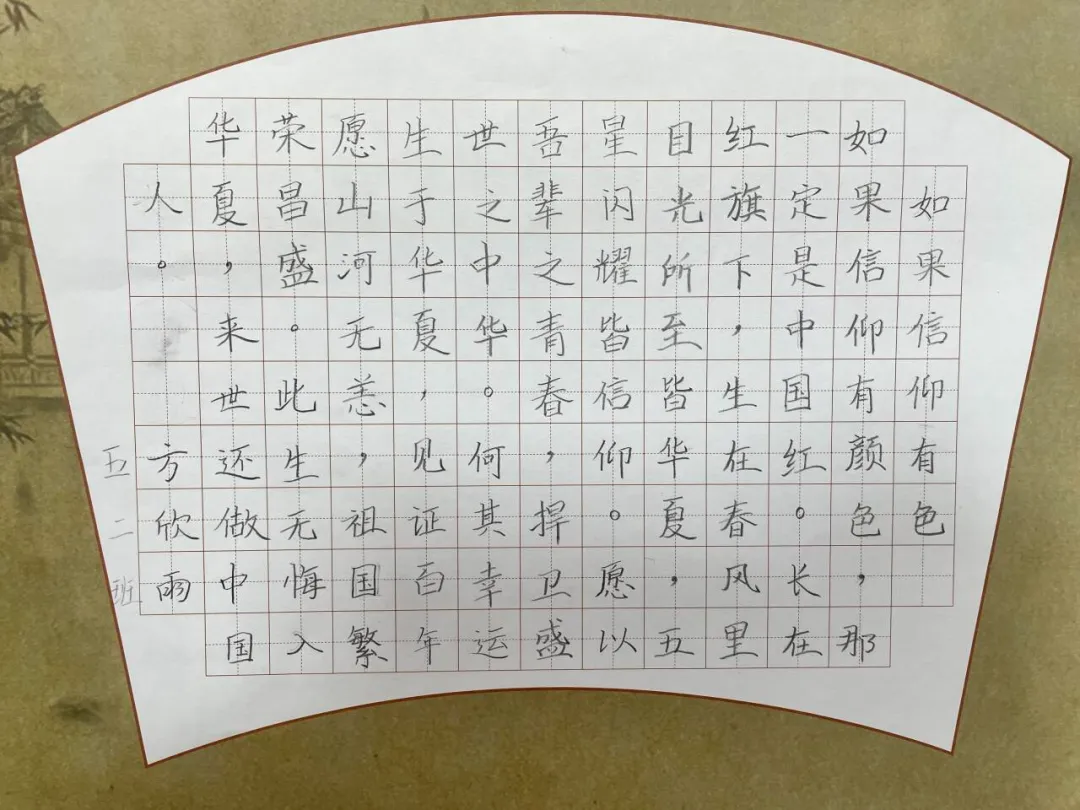 如果信仰有色
如果信仰有颜色，那
一定是中国红。长在
红旗下，生在春风里
目光所至皆华夏，五
星闪耀皆信仰。愿以
吾辈之青春，捍卫盛
世之中华。何其幸运
生于华夏，见证百年
愿山河无恙，祖国繁
荣昌盛。此生无悔入
华夏，来世还做中国
人。方欣雨
五二班